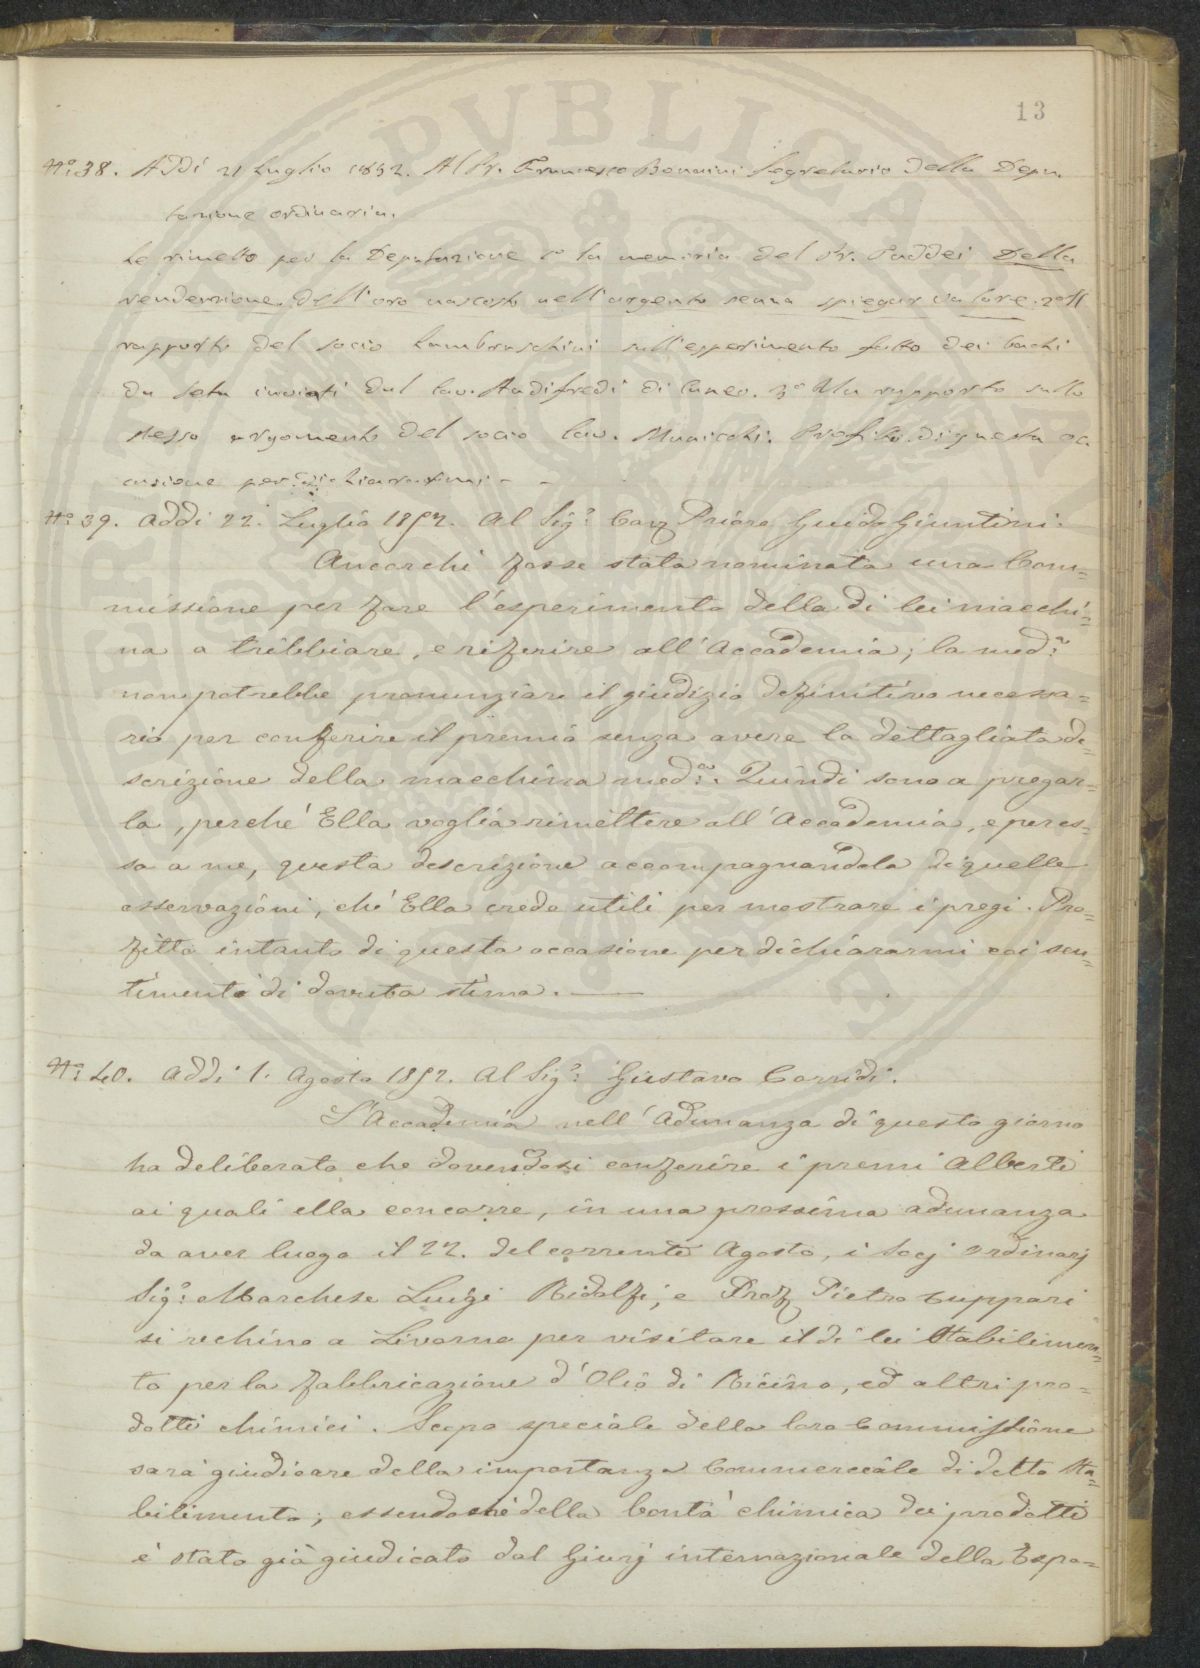 13
N.° 38. Addì 21 Luglio 1852. Al Sr. Francesco Bonaini Segretario della Depu
tazione ordinaria.
Le rimetto per la Deputazione 1° la memoria del Sr. Taddei Della
rendezione dell'oro nascosto nell'argento senza spiegar valore. 2° Il
rapporto del socio Lambruschini sull'esperimento fatto dei bachi
da seta inviati dal Cav. Audifredi di Cuneo. 3° Un rapporto sullo
stesso argomento del socio Cav. Profitto di questa oc
casione per dichiararmi - -
N.° 39. Addì 22. Luglio 1852. Al Sig.° Cav. Priore Guido Giuntini.
Ancorchì fosse stata nominata una Com=
missione per fare l'esperimento della di lei macchi=
na a tribbiare, e riferire all'Accademia; la med.ª
non potrebbe pronunziare il giudizio definitivo necessa=
rio per conferire il premio senza avere la dettagliata de=
scrizione della macchina med.ª. Quindi sono a pregar=
la, perchè Ella voglia rimettere all'Accademia, e per es=
sa a me, questa descrizione accompagnandola di quelle
osservazioni, che Ella crede utili per mostrare i pregi. Pro=
fitto intanto di questa occasione per dichiararmi coi sen=
timenti di dovuta stima. —
N.° 40. Addì 1. Agosto 1852. Al Sig.° Gustavo Corridi.
L'Accademia nell'Adunanza di questo giorno
ha deliberato che dovendosi conferire i premi Alberti
ai quali ella concorre, in una prossima adunanza
da aver luogo il 22. del corrente Agosto, i Socj ordinarj
Sig.° Marchese Luigi Ridolfi, e Prof. Pietro Cuppari
si rechino a Livorno per visitare il di lei Stabilimen=
to per la fabbricazione d'Olio di Ricino, ed altri pro=
dotti chimici. Scopo speciale della loro Commissione
sarà giudicare della importanza Commerciale di detto Sta=
bilimento; essendochè della bontà chimica dei prodotti
è stato già giudicato dal Giurj internazionale della Espo=